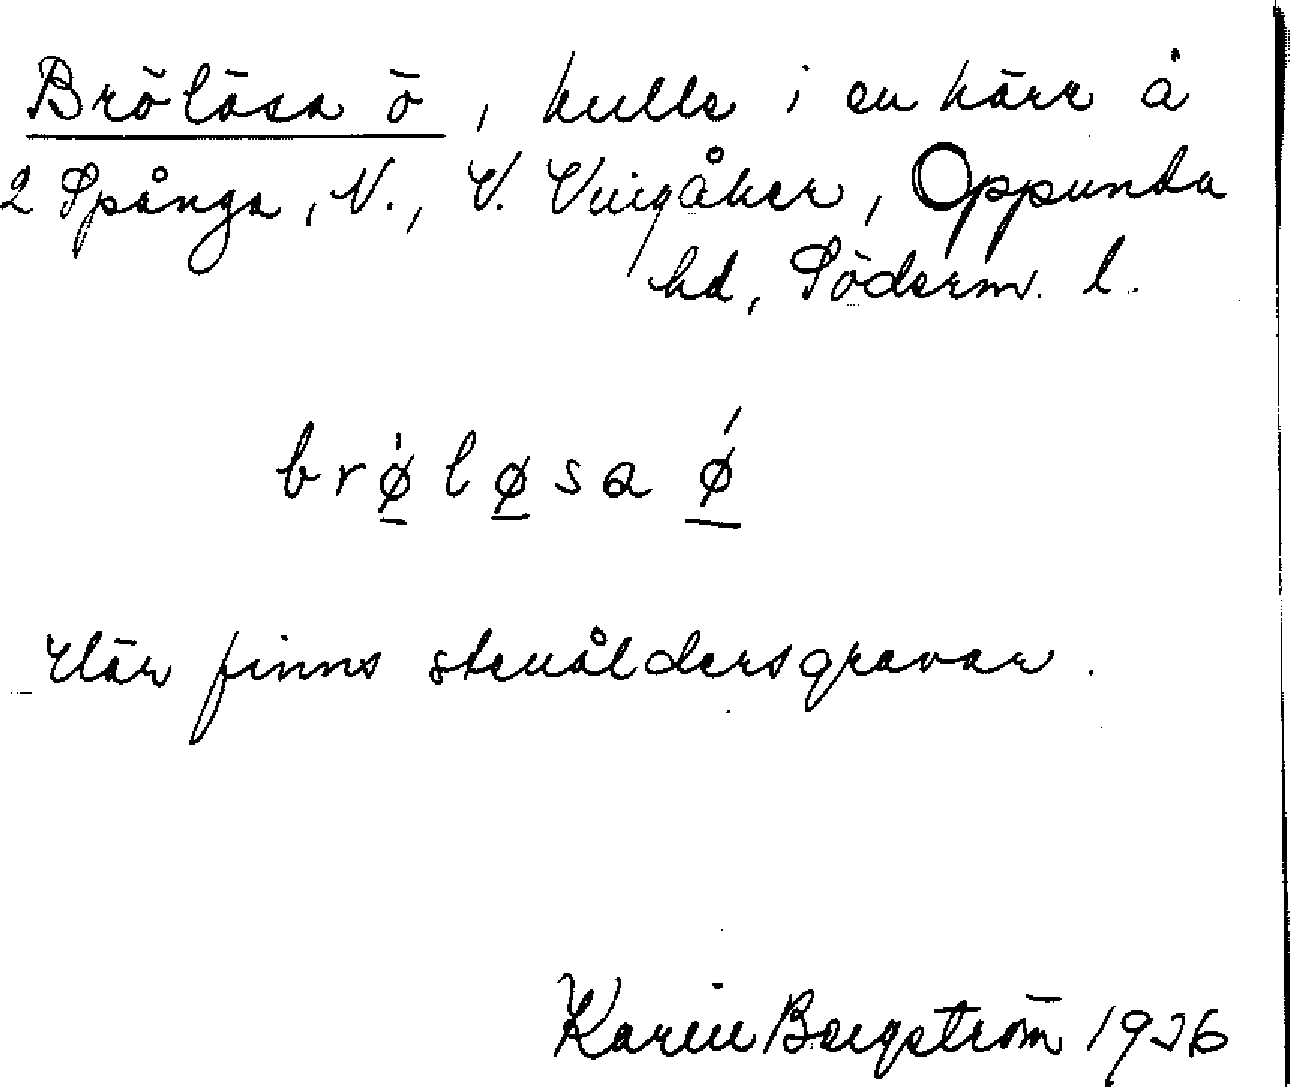 Brölösa ö, kulle i en kärr å
2 Spånga, N., V. Vingåker, Oppunda
hd, Söderm. l.
brǿ̱lø̱sa ǿ̱
Här finns stenåldersgravar.
Karin Bergström 1926